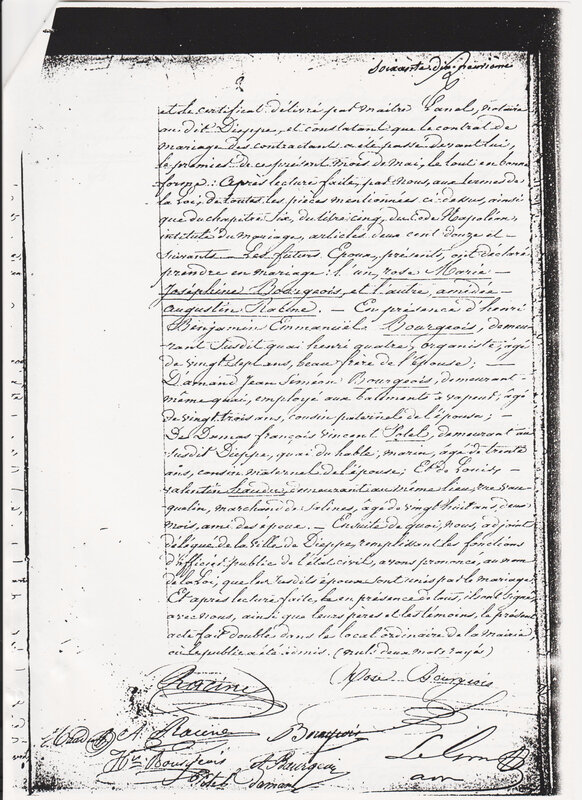 Soixante dix-neuvième
et le certificat délivré par maître Panel, notaire
au dit Dieppe, et constatant que le contrat de
mariage des contractants a été passé devant lui,
le premier de ce présent mois de mai, le tout en bonne
forme; Après lecture faite, par nous, aux termes de
la Loi; de toutes les pièces mentionnées ci-dessus, ainsi
que du chapitre six, du titre cinq, du Code Napoléon,
intitulé du mariage, articles deux cent douze et
suivants — Les futurs Epoux, présents, ont déclaré
prendre en mariage: l'un, rose Marie —
Joséphine Bourgeois, et l'autre, amédée
augustin Racine. — En présence d'henri
Benjamin Emmanuël Bourgeois, demeu-
rant Susdit quai henri quatre, organiste, âgé
de vingt sept ans, beau frère de l'épouse; —
Damand Jean Siméon Bourgeois, demeurant
même quai, employé aux batiments à vapeur, âgé
de vingt trois ans, cousin paternel de l'épouse; —
De Damas françois vincent Potel, demeurant au
susdit Dieppe, quai du hable, marin, âgé de trente
ans, cousin maternel de l'épouse; Et de Louis, —
valentin demeurant au même lieu, rue vau-
quelin, marchand de Salines, âgé de vingt huit ans, deux
mois, ami des époux. — Ensuite de quoi, nous, adjoint
délégué de la ville de Dieppe, remplissant les fonctions
d'officier public de l'état civil, avons prononcé, au nom
de la Loi, que les susdits époux sont unis par le mariage
Et après lecture faite, en présence de tous, ils ont signé
avec nous, ainsi que leurs pères et les témoins, le présent
acte fait double dans le local ordinaire de la mairie
où le public a été admis. (nuls deux mots rayés)
Racine Bourgeois
A Racine Bourgeois
Bourgeois A Bourgeois
Potel Damas